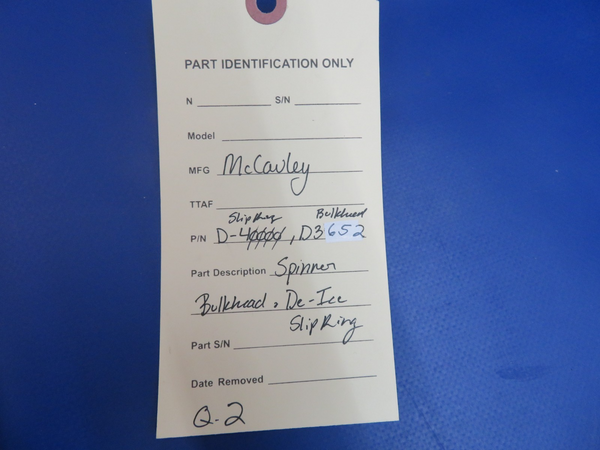 PART IDENTIFICATION ONLY
N S/N
Model
MFG McCauley
TTAF
Slip Ring Bulkhead
P/N D-4 , D3652
Part Description Spinner
Bulkhead, De-Ice
Slip Ring
Part S/N
Date Removed
Q-2